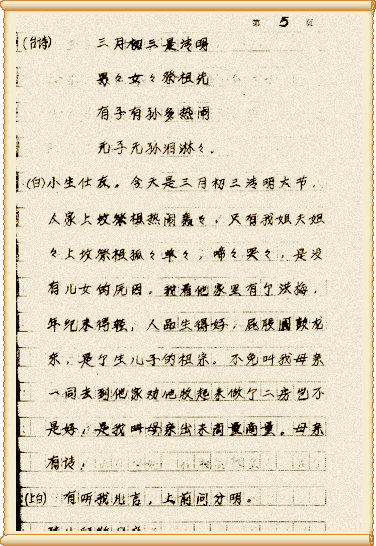 第 5 页
(白诗) 三月初三是清明
男々女々祭祖先
有子有孙多热闹
无子无孙泪淋々.
(白)小生仕友。今天是三月初三清明大节，
人家上坟祭祖热闹轰々，只有我姐夫姐
々上坟祭祖孤々单々，啼々哭々，是没
有儿女的原因。我看他家里有个洪梅，
年纪来得轻，人品生得好，屁股圆鼓龙
东，是个生儿子的祖宗。不免叫我母亲
一同去到他家劝他收起来做个二房岂不
是好，是我叫母亲出来商量商量。母亲
有请，
(上白) 有听我儿言，上前问分明。